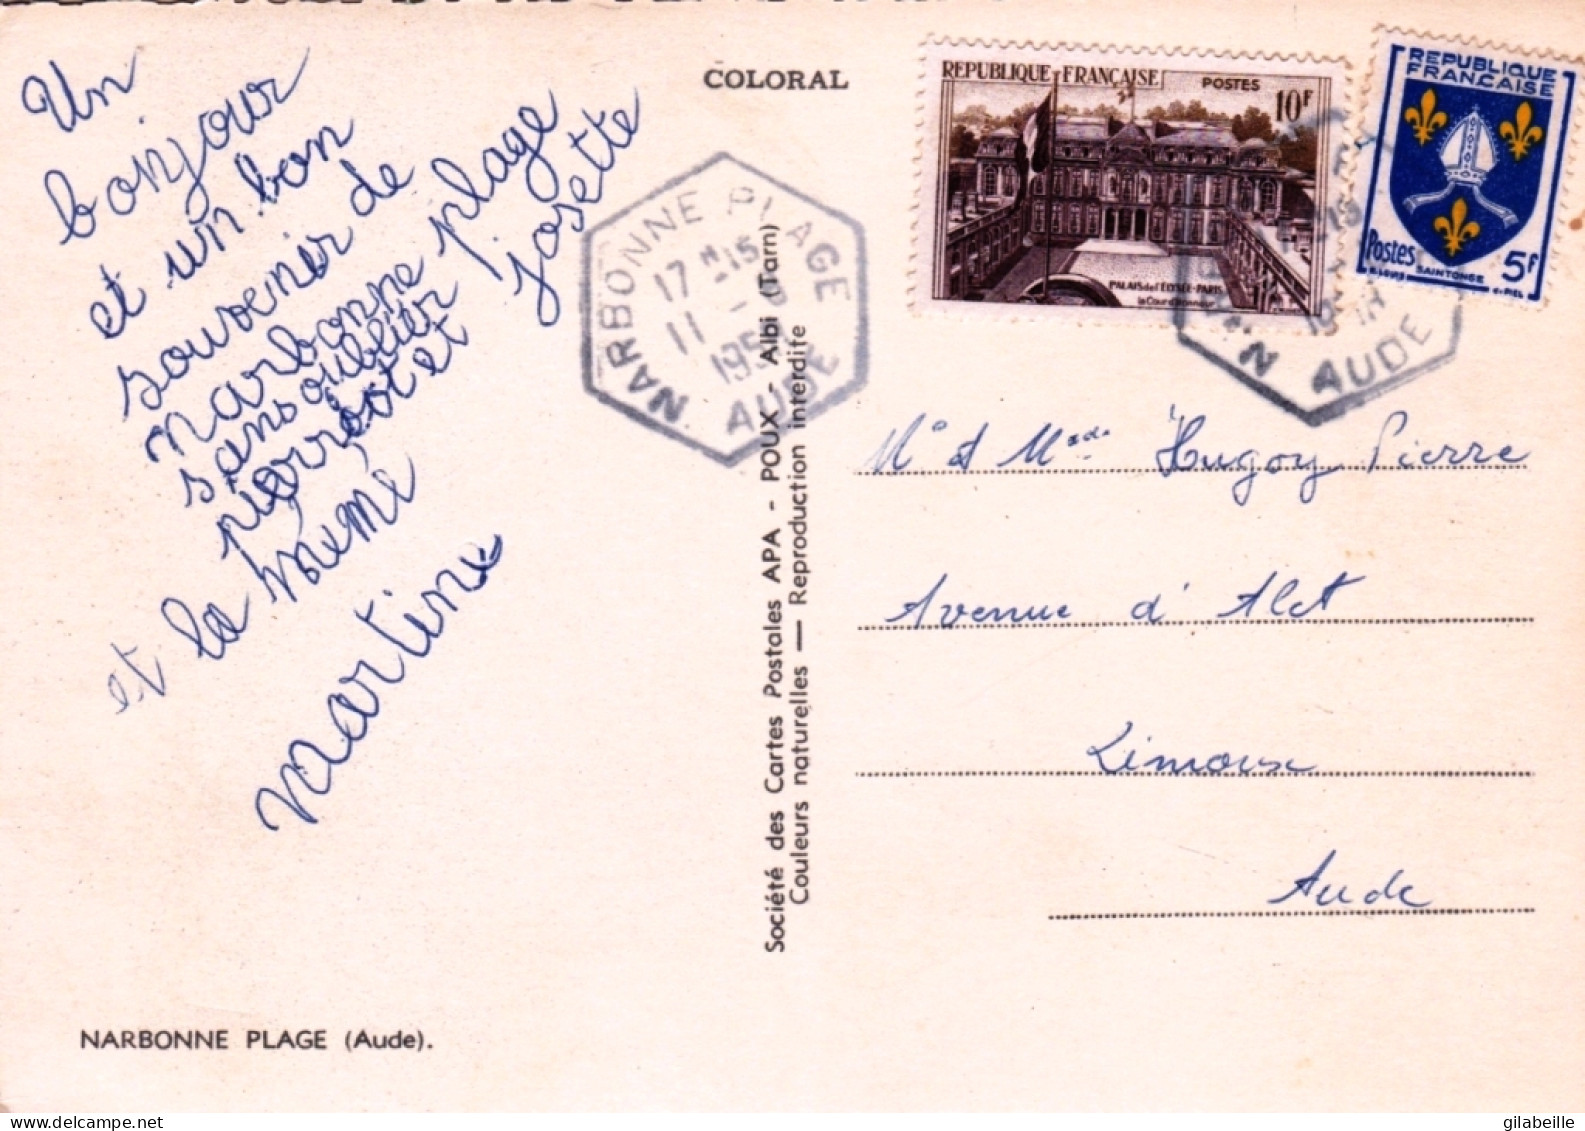 COLORAL
REPUBLIQUE FRANÇAISE
POSTES
10F
PALAIS de l'ÉLYSÉE-PARIS
la Cour d'honneur
REPUBLIQUE
FRANÇAISE
Postes
SAINTONGE
5F
NARBONNE PLAGE
17H15
11
AUDE
AUDE
Un
bonjour
et un bon
souvenir de
narbonne plage
sans oublier
pierrot et josette
et la mémé
martine
Société des Cartes Postales APA - POUX - Albi (Tarn)
Couleurs naturelles — Reproduction interdite
Mr et Mme Hugoy Pierre
Avenue d'Alet
Limoux
Aude
NARBONNE PLAGE (Aude).
gilabeille